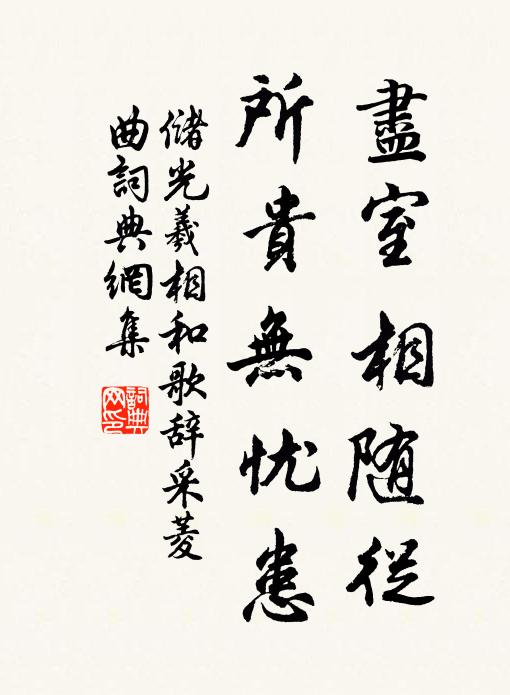 盡室相随從
所貴無忧患
儲光羲相和歌辞采菱
曲詞典網集
詞典
网印